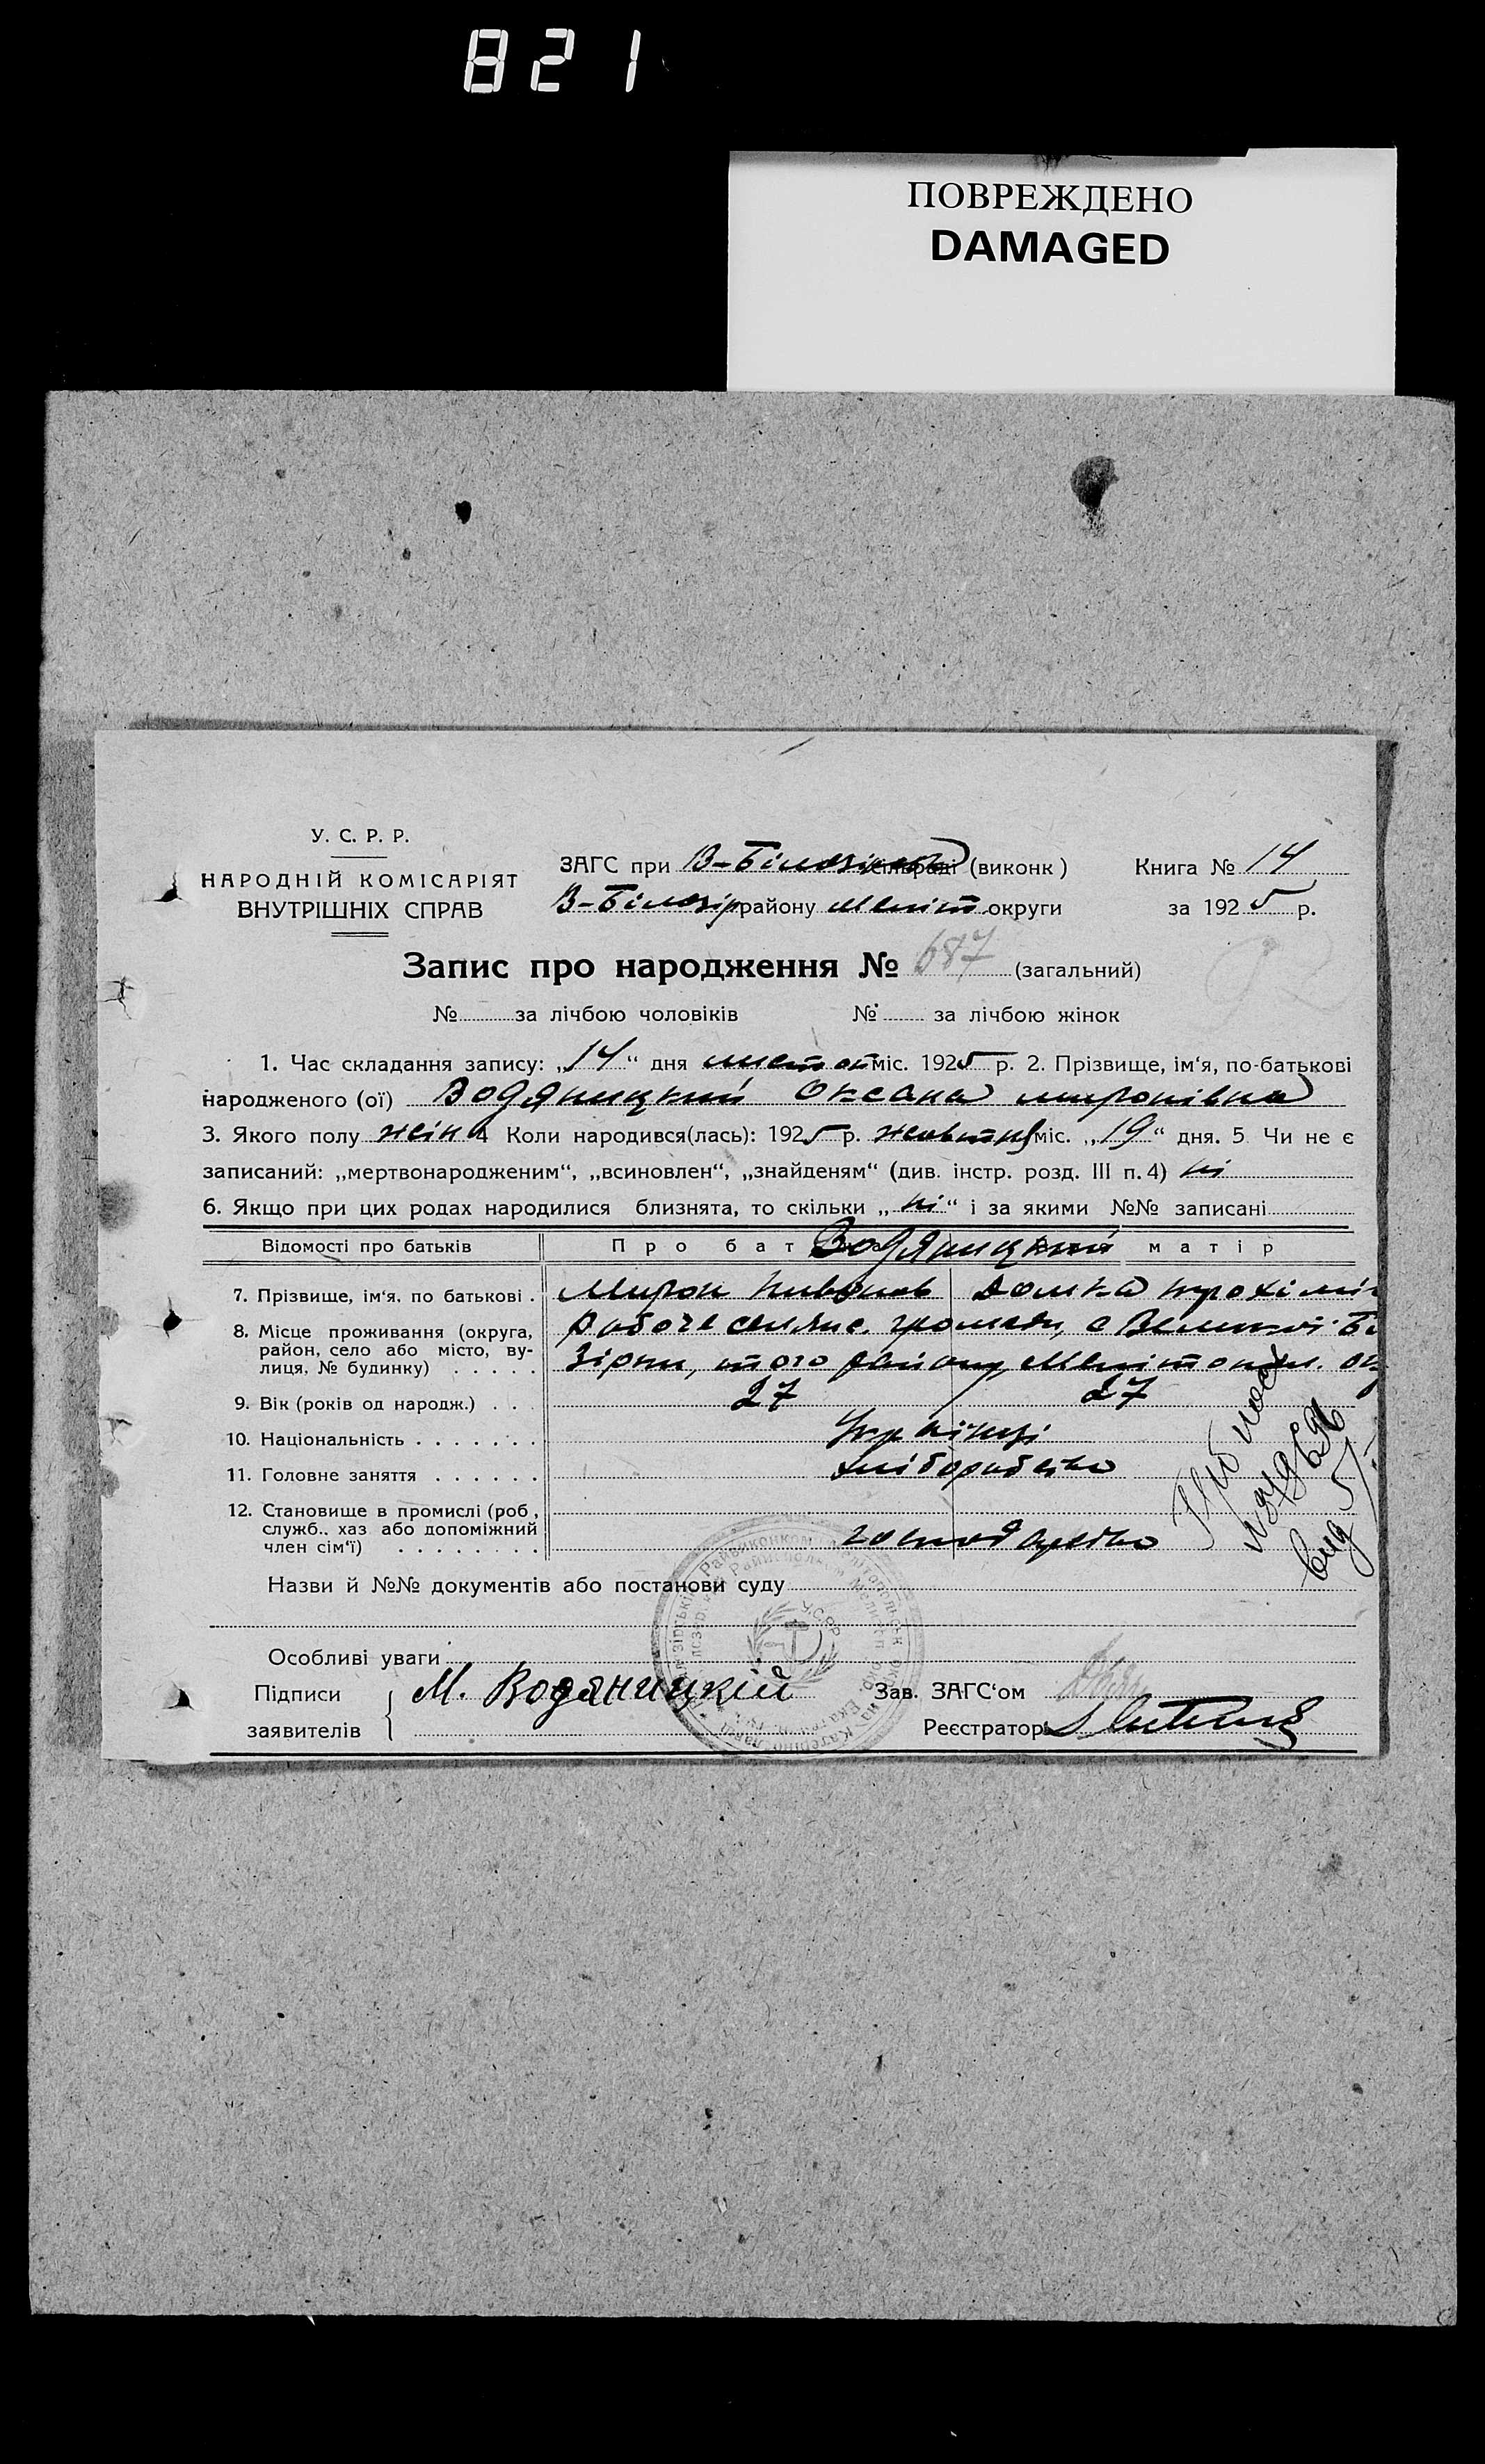 821
ПОВРЕЖДЕНО
DAMAGED
У. С. Р. Р.
НАРОДНІЙ КОМІСАРІЯТ
ВНУТРІШНІХ СПРАВ
ЗАГС при В-Білозірськ сільраді (виконк) Книга № 14
В-Білозір району Меліт. округи за 1925 р.
Запис про народження № 687 (загальний)
№ за лічбою чоловіків № за лічбою жінок
1. Час складання запису: „14“ дня листоп міс. 1925 р. 2. Прізвище, ім‘я, по-батькові
народженого (ої) Водяницкий Оксана миронівна
3. Якого полу жін 4 Коли народився(лась): 1925 р. жовтня міс. „19“ дня. 5 Чи не є
записаний: „мертвонародженим“, „всиновлен“, „знайденям“ (див. інстр. розд. III п. 4) ні
6. Якщо при цих родах народилися близнята, то скільки „ні“ і за якими №№ записані
Відомості про батьків Про бат Водяницкий матір
7. Прізвище, ім‘я, по батькові . Мирон Домка
8. Місце проживання (округа, район, село або місто, вулиця, № будинку) . . . . . Рабоче селянс. громади, с Великої Бі
зірки, того району, Мелітопол. ок
9. Вік (років од народж.) . . . 27 27
10. Національність . . . . . . . Українці
11. Головне заняття . . . . . . хліборобство
12. Становище в промислі (роб, служб., хаз або допоміжний член сім‘ї) . . . . . . . . господарство
№
вид
Назви й №№ документів або постанови суду
Особливі уваги
Підписи заявителів М. Водяницкій
Зав. ЗАГС‘ом
Реєстратор